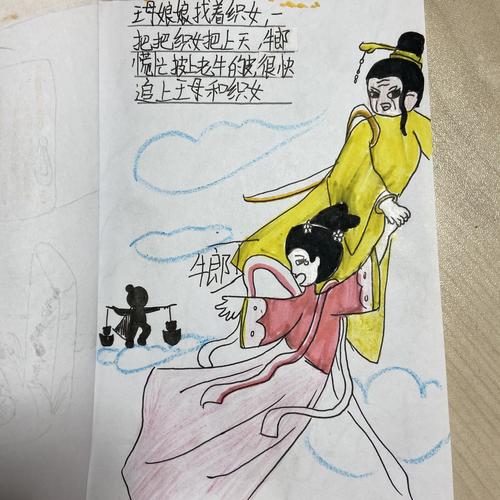 王母娘娘找着织女,一
把把织女把上天,牛郎
慌忙披上老牛的皮,很快
追上王母和织女
牛郎